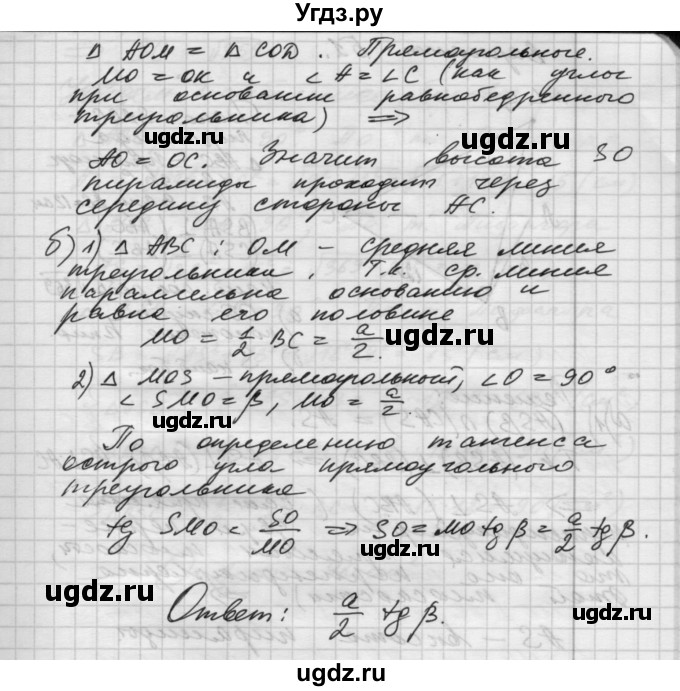 Угдз.ру
Δ AOM = Δ COD. Прямоугольные.
MO = OK и ∠A = ∠C (как углы
при основании равнобедренного
треугольника) ⟹
ugdz.ru ugdz.ru
AO = OC. Значит высота SO
пирамиды проходит через
середину стороны AC.
б) 1) Δ ABC: OM – средняя линия
треугольника. Т.к. ср. линия
параллельна основанию и
равна его половине
MO = 1/2 BC = a/2.
ugdz.ru
2) Δ MOS – прямоугольный, ∠O = 90°
∠ SMO = β, MO = a/2.
ugdz.ru
По определению тангенса
острого угла прямоугольного
треугольника
ugdz.ru
tg SMO = SO/MO ⟹ SO = MO tg β = a/2 tg β.
ugdz.ru ugdz.ru
Ответ: a/2 tg β.
ugdz.ru
ugdz.ru